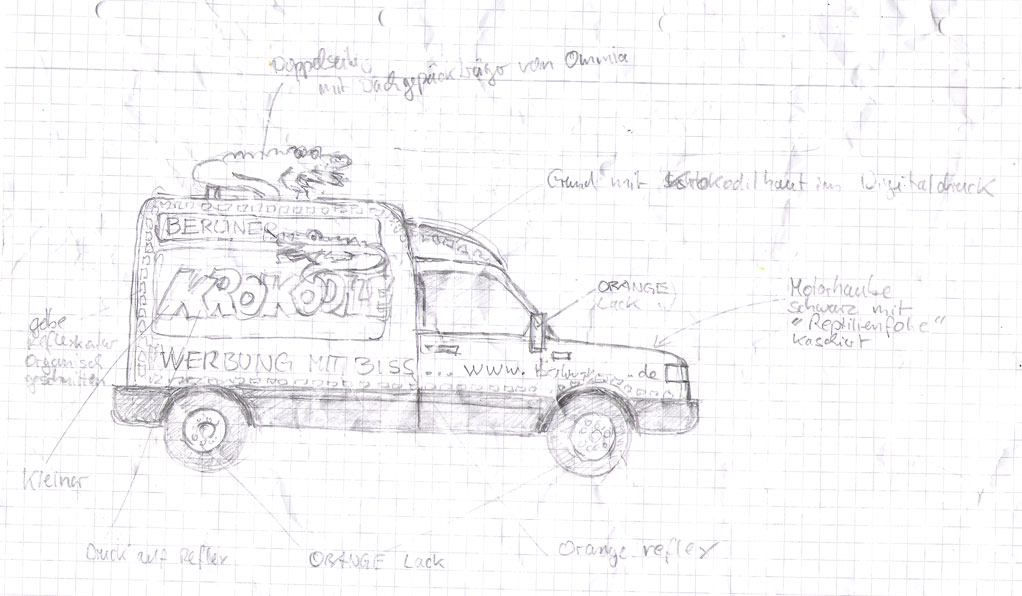 Doppelseitig
mit Dachgepäckträger von Ommia
Grund mit Krokodilhaut im Digitaldruck
BERLINER
KROKODIL
ORANGE
Lack
Motorhaube
schwarz mit
"Reptilienfolie"
kaschiert
gelbe
Reflexkater
Organisch
geschnitten
WERBUNG MIT BISS ... www. .de
Kleiner
Druck auf Reflex
ORANGE Lack
Orange reflex